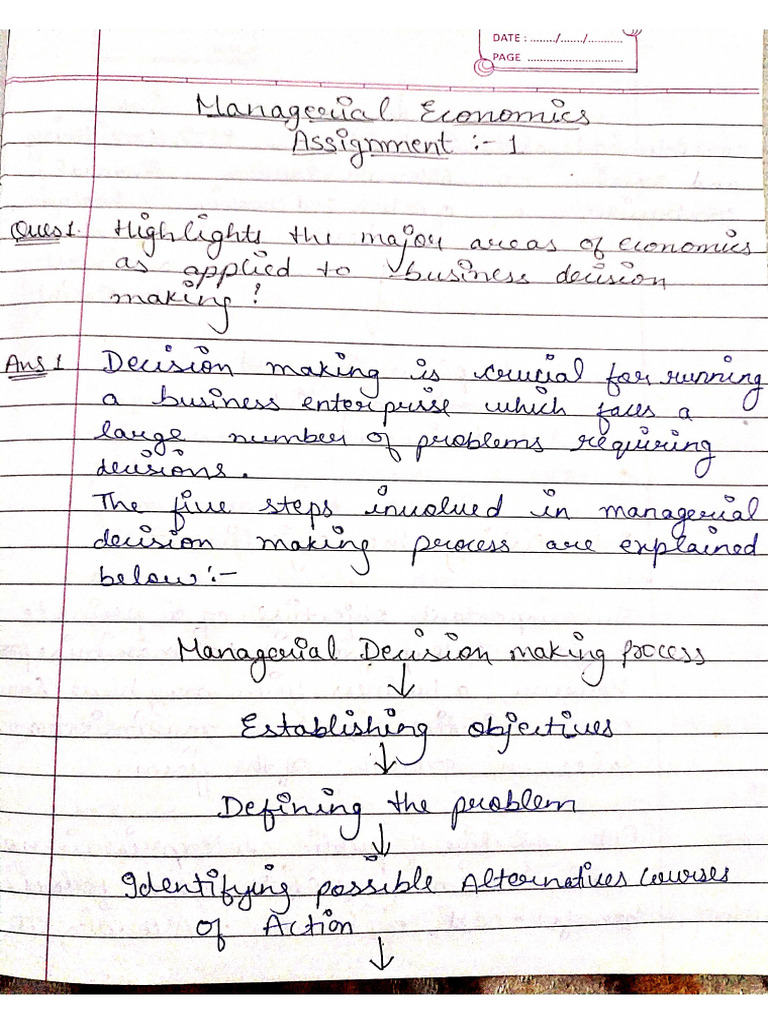 DATE : ......../......./...........
PAGE ..............................
Managerial Economics
Assignment :- 1
Ques 1. Highlights the major areas of economics
as applied to business decision
making?
Ans 1 Decision making is crucial for running
a business enterprise which faces a
large number of problems requiring
decisions.
The five steps involved in managerial
decision making process are explained
below:-
Managerial Decision making process
↓
Establishing objectives
↓
Defining the problem
↓
Identifying possible Alternatives courses
of Action
↓